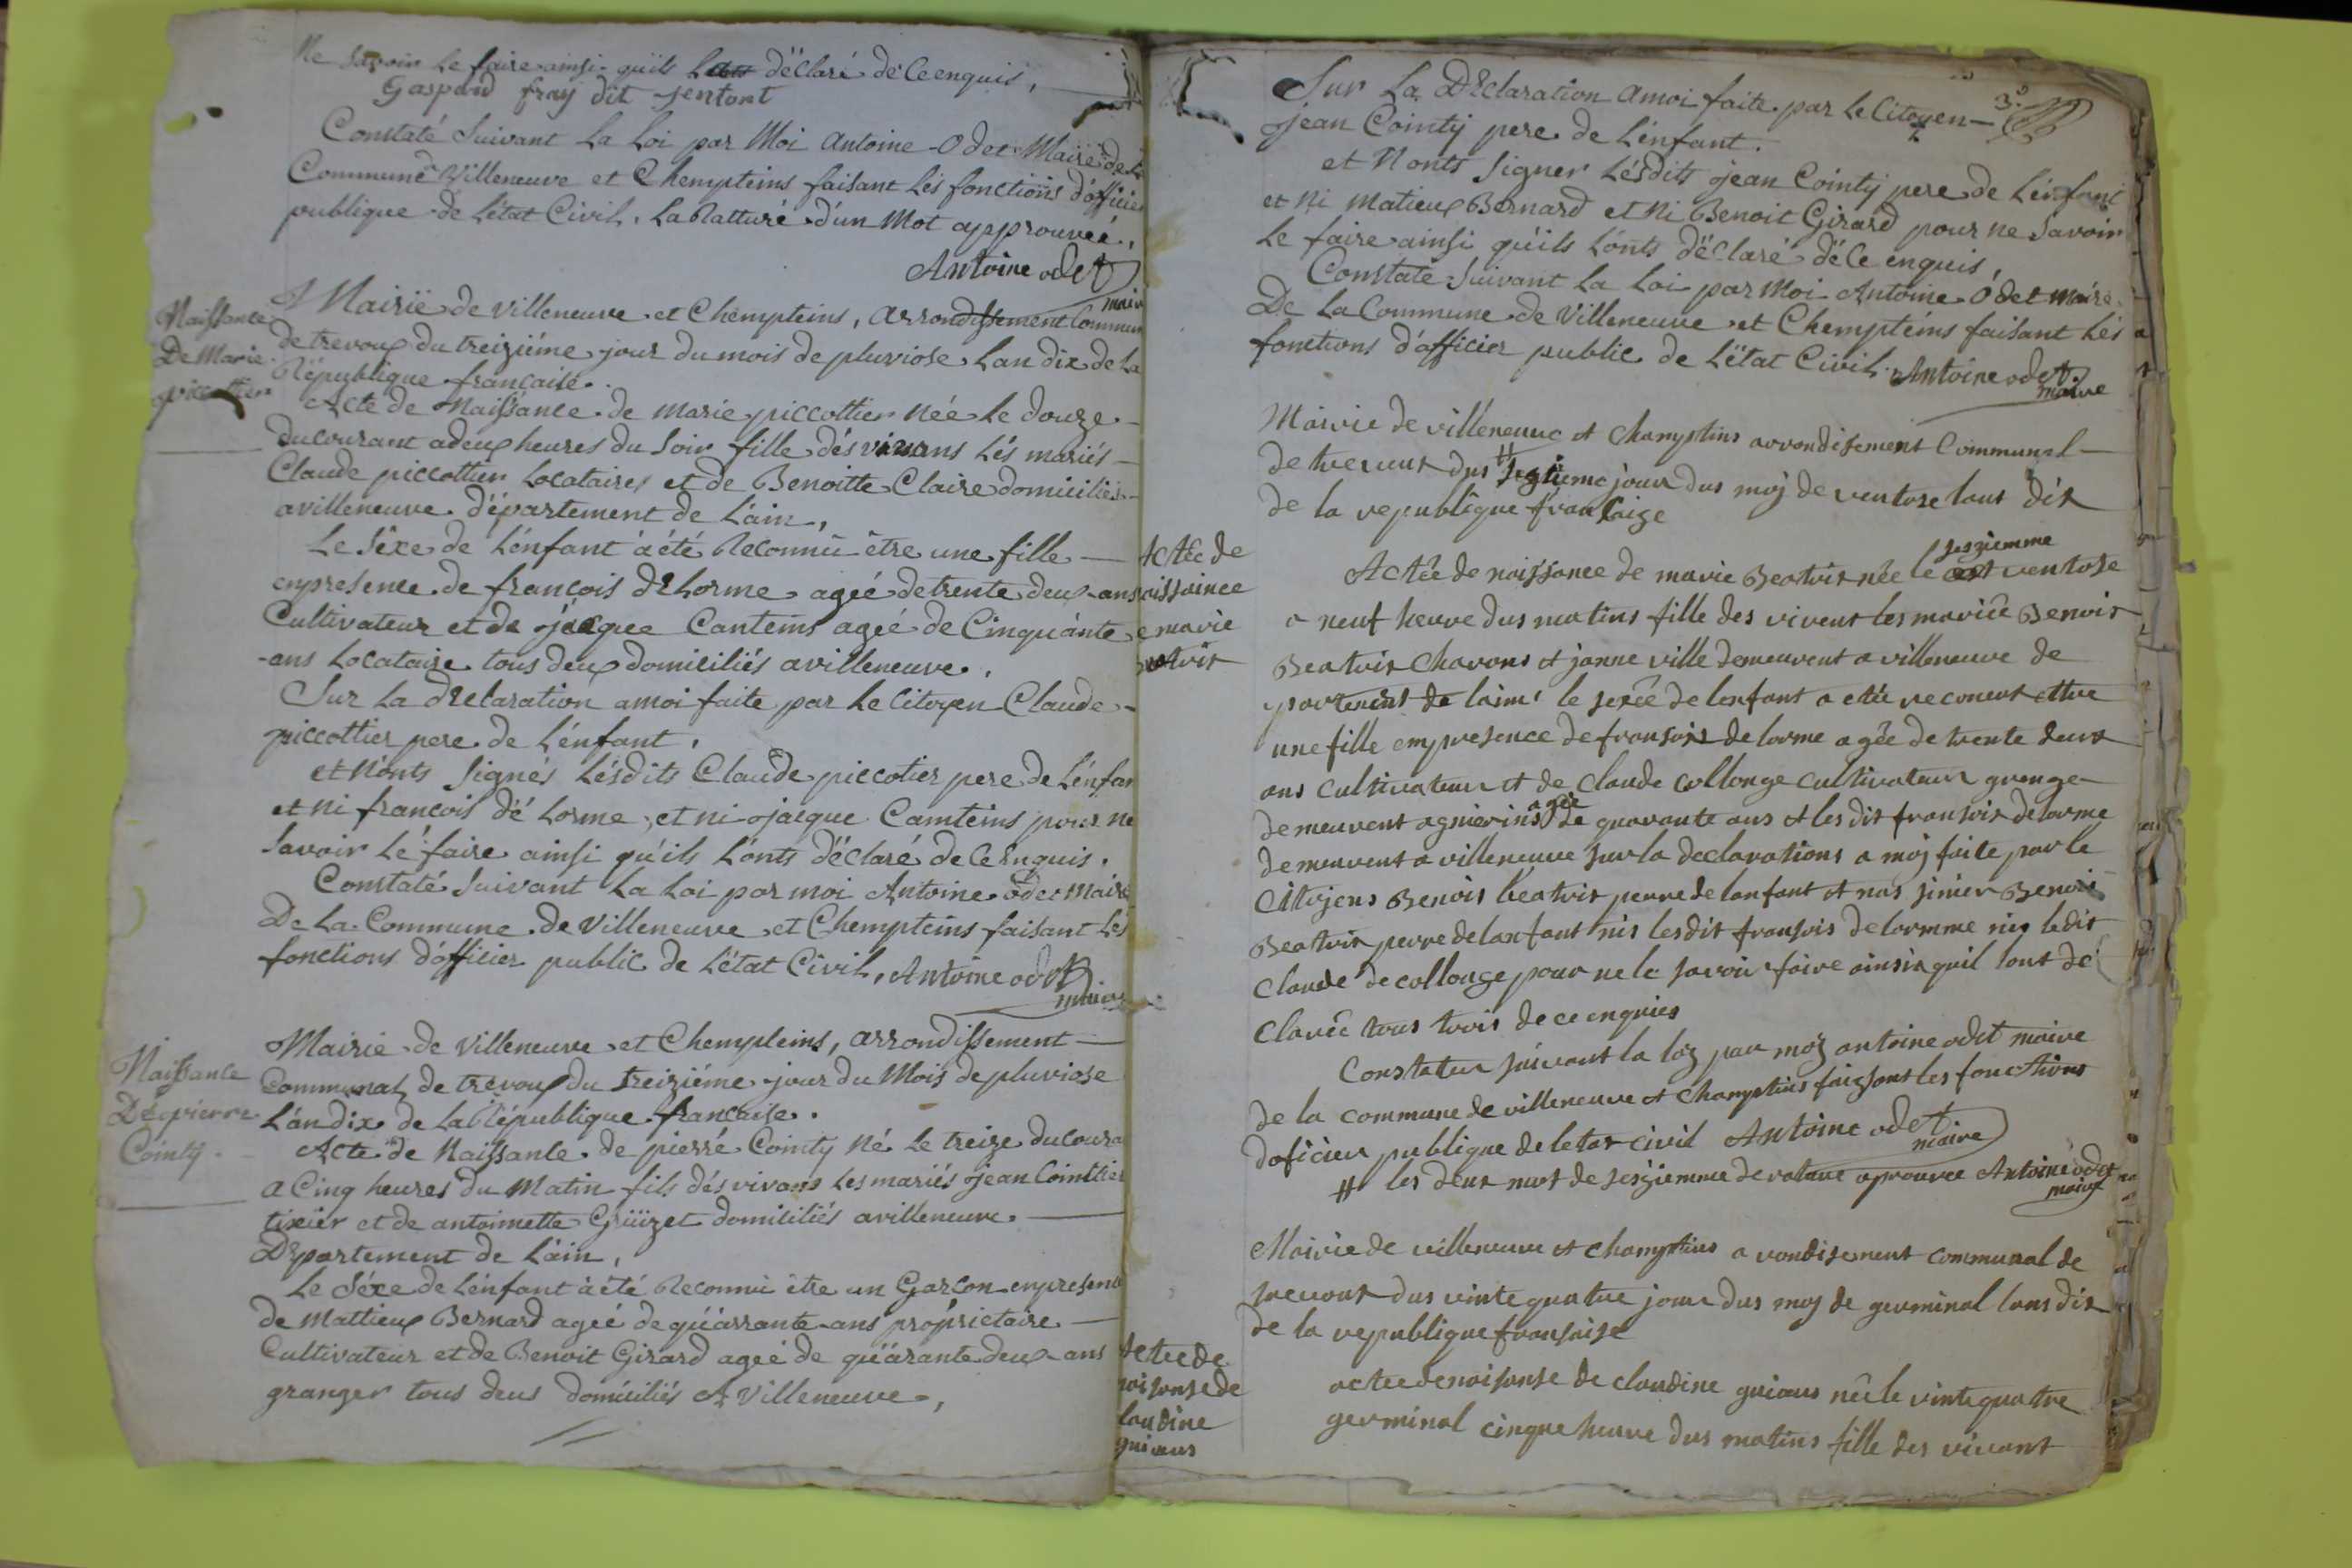 Ne Savoir le faire ainsi quils L'ont déclaré de Ce enquis,
Gaspard fray dit jentont
Constaté Suivant la Loi par Moi Antoine Odet Maire de la
Commune Villeneuve et Chempteins faisant Lés fonctions d'officier
publique de L'état Civil. La Ratturé d'un Mot approuvéé,
Antoine odet
maire
Naissance
De Marie
piccottier
Mairië de villeneuve et Chempteins, arrondissement Commun
de trevoux du treiziéme jour du mois de pluviose Lan dix de La
République francaise.
Acte de Naissance de marie piccottier Née Le douze
du courant a deux heures du Soir fille dés vivans Lés mariés
Claude piccottier Locataires et de Benoitte Claire domiciliés
a villeneuve département de L'ain,
Le Séxe de L'énfant a été Reconnu être une fille
en presence de françois deLorme ageé de trente deux ans
Cultivateur et de jacque Canteins ageé de Cinquánte
ans Locataire tous deux domiciliés a villeneuve.
Sur La declaration a moi faite par Le Citoyen Claude
piccottier pere de L'énfant,
et N'onts Signés Lésdits Claude piccotier pere de L'énfan
et ni francois dé Lorme, et ni jacque Camteins pour ne
Savoir Lé faire ainsi qu'ils L'onts déclaré de Ce Enquis.
Constaté Suivant La Loi par moi Antoine odet Maire
De La Commune de Villeneuve et Chempteins faisant Lés
fonctions d'officier public de L'état Civil, Antoine odet
maire
Naissance
Dé pierre
Cointy
Mairie de villeneuve et Chempteins, arrondissement
Communal de trévoux du treiziéme jour du Mois de pluviose
L'an dix de La République francaise.
Acte de Naissance de pierré Cointy Né Le treize du Coura
a Cinq heures du Matin fils dés vivans Les mariés jean Cointtier
tixiér et de antoinette Grüizet domiciliés a villeneuve.
Département de L'ain,
Le Séxe de L'énfant à été Reconnu être un Garçon en presence
de Mattieux Bernard ageé de quarrante ans propriétaire
Cultivateur et de Benoit Girard ageé de quarante deux ans
granger tous deus domiciliés A Villeneuve,
3e
Sur La Déclaration a moi faite par Le Citoyen
jean Cointy pere de L'énfant.
et N'onts Signer Lésdits jean Cointy pere de L'énfant
et Ni Matieux Bernard et Ni Benoit Girard pour ne Savoir
Le faire ainsi qu'ils L'onts déclaré dé Ce enquis,
Constaté Suivant La Loi par Moi Antoine Odet Maire
De La Commune de Villeneuve et Chempteins faisant Lés
fonctions d'officier public de L'état Civil. Antoine odet.
maire
Mairie de villeneuve et Champtins arrondisement Communal
de trevous dus # jour dus moj de ventose lans dis
de la republique fransaize
Actée de
naissaince
de marie
Beatris
sesziemme
Actée de naissance de marie Beatris née le ventose
a neuf heure dus matins fille des vivent les mariée Benois
Beatris Charons et janne ville demeurent a villeneuve de
partement de lain le sexée de lenfant a etée reconeut ettre
une fille empresence de fransois delorme agée de trente deux
ans cultivateur et de claude Collonge cultivateur grenge
demeurent agnierins agée de quarante ans et les dit fransois delorme
demeurent a villeneuve sur la declarations a moj faite par le
Citojens Benois beatris perre de lanfant et nas sinier Benois
Beatris perre de lanfant nis lesdit fransois delormme nis ledit
claude de collonge pour ne le savoir faire ainsis quil lont dé
clarée tous trois de ce enquies
Constateu suivant la loj par moj antoine odet maire
de la commune de villeneuve et Champtins faizsant les fonctions
doficieu publique de letas civil Antoine odet
maire
# les deux mot de sesziemme de rature aprouvee Antoine odet
maire
Mairie de villeneuve et Champtins arondisement communal de
trevous dus vinte quatre jour dus moj de germinal lans dis
de la republique fransaise
Actee de
naisanse de
Claudine
guiaus
actee denaisanse de claudine guiaus née le vinte quatre
germinal cinque heure dus matins fille des vivant